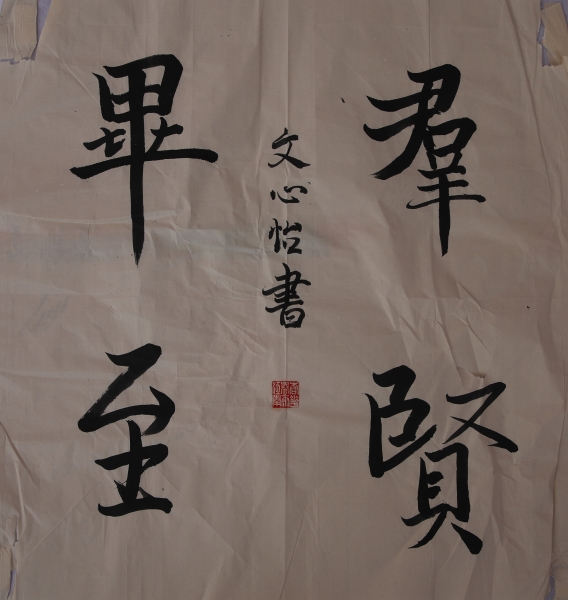 羣賢
畢至
文心怡書